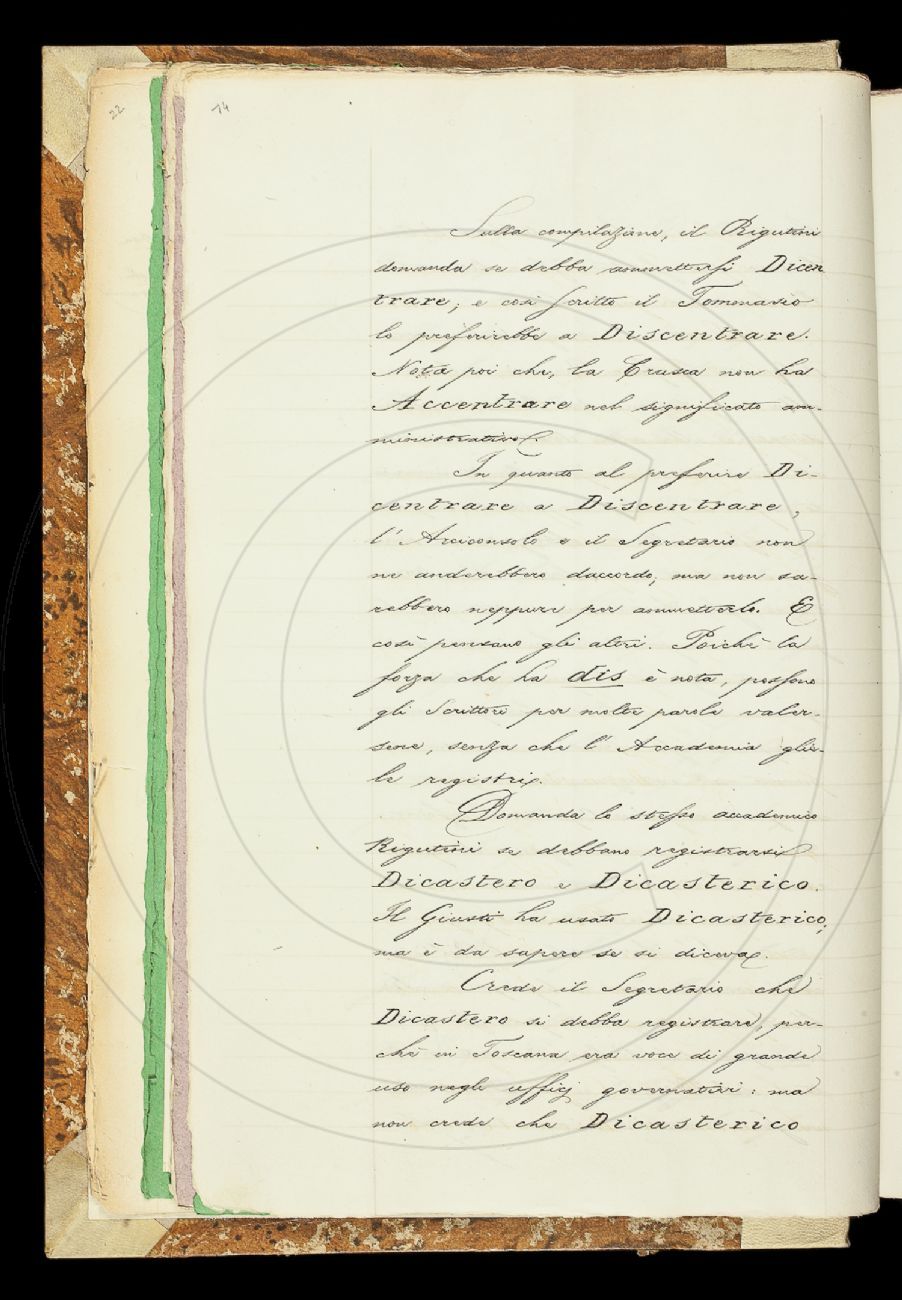 22
74
Sulla compilazione, il Rigutini
domanda se debba ammettersi Dicen
trare; e così scritto il Tommasèo
lo preferirebbe a Discentrare.
Nota poi che, la Crusca non ha
Accentrare nel significato am-
ministrativo.
In quanto al preferire Di-
centrare a Discentrare,
l'Arciconsolo e il Segretario non
ne anderebbero daccordo; ma non sa-
rebbero neppure per ammetterlo. E
così pensano gli altri. Poichè la
forza che ha dis è nota, possono
gli Scrittori per molte parole valer-
sene, senza che l'Accademia glie-
le registri.
Domanda lo stesso accademico
Rigutini se debbano registrarsi
Dicastero e Dicasterico.
Il Giusti ha usato Dicasterico;
ma è da sapere se si diceva.
Crede il Segretario che
Dicastero si debba registrare, per-
chè in Toscana era voce di grande
uso negli ufficj governativi: ma
non crede che Dicasterico